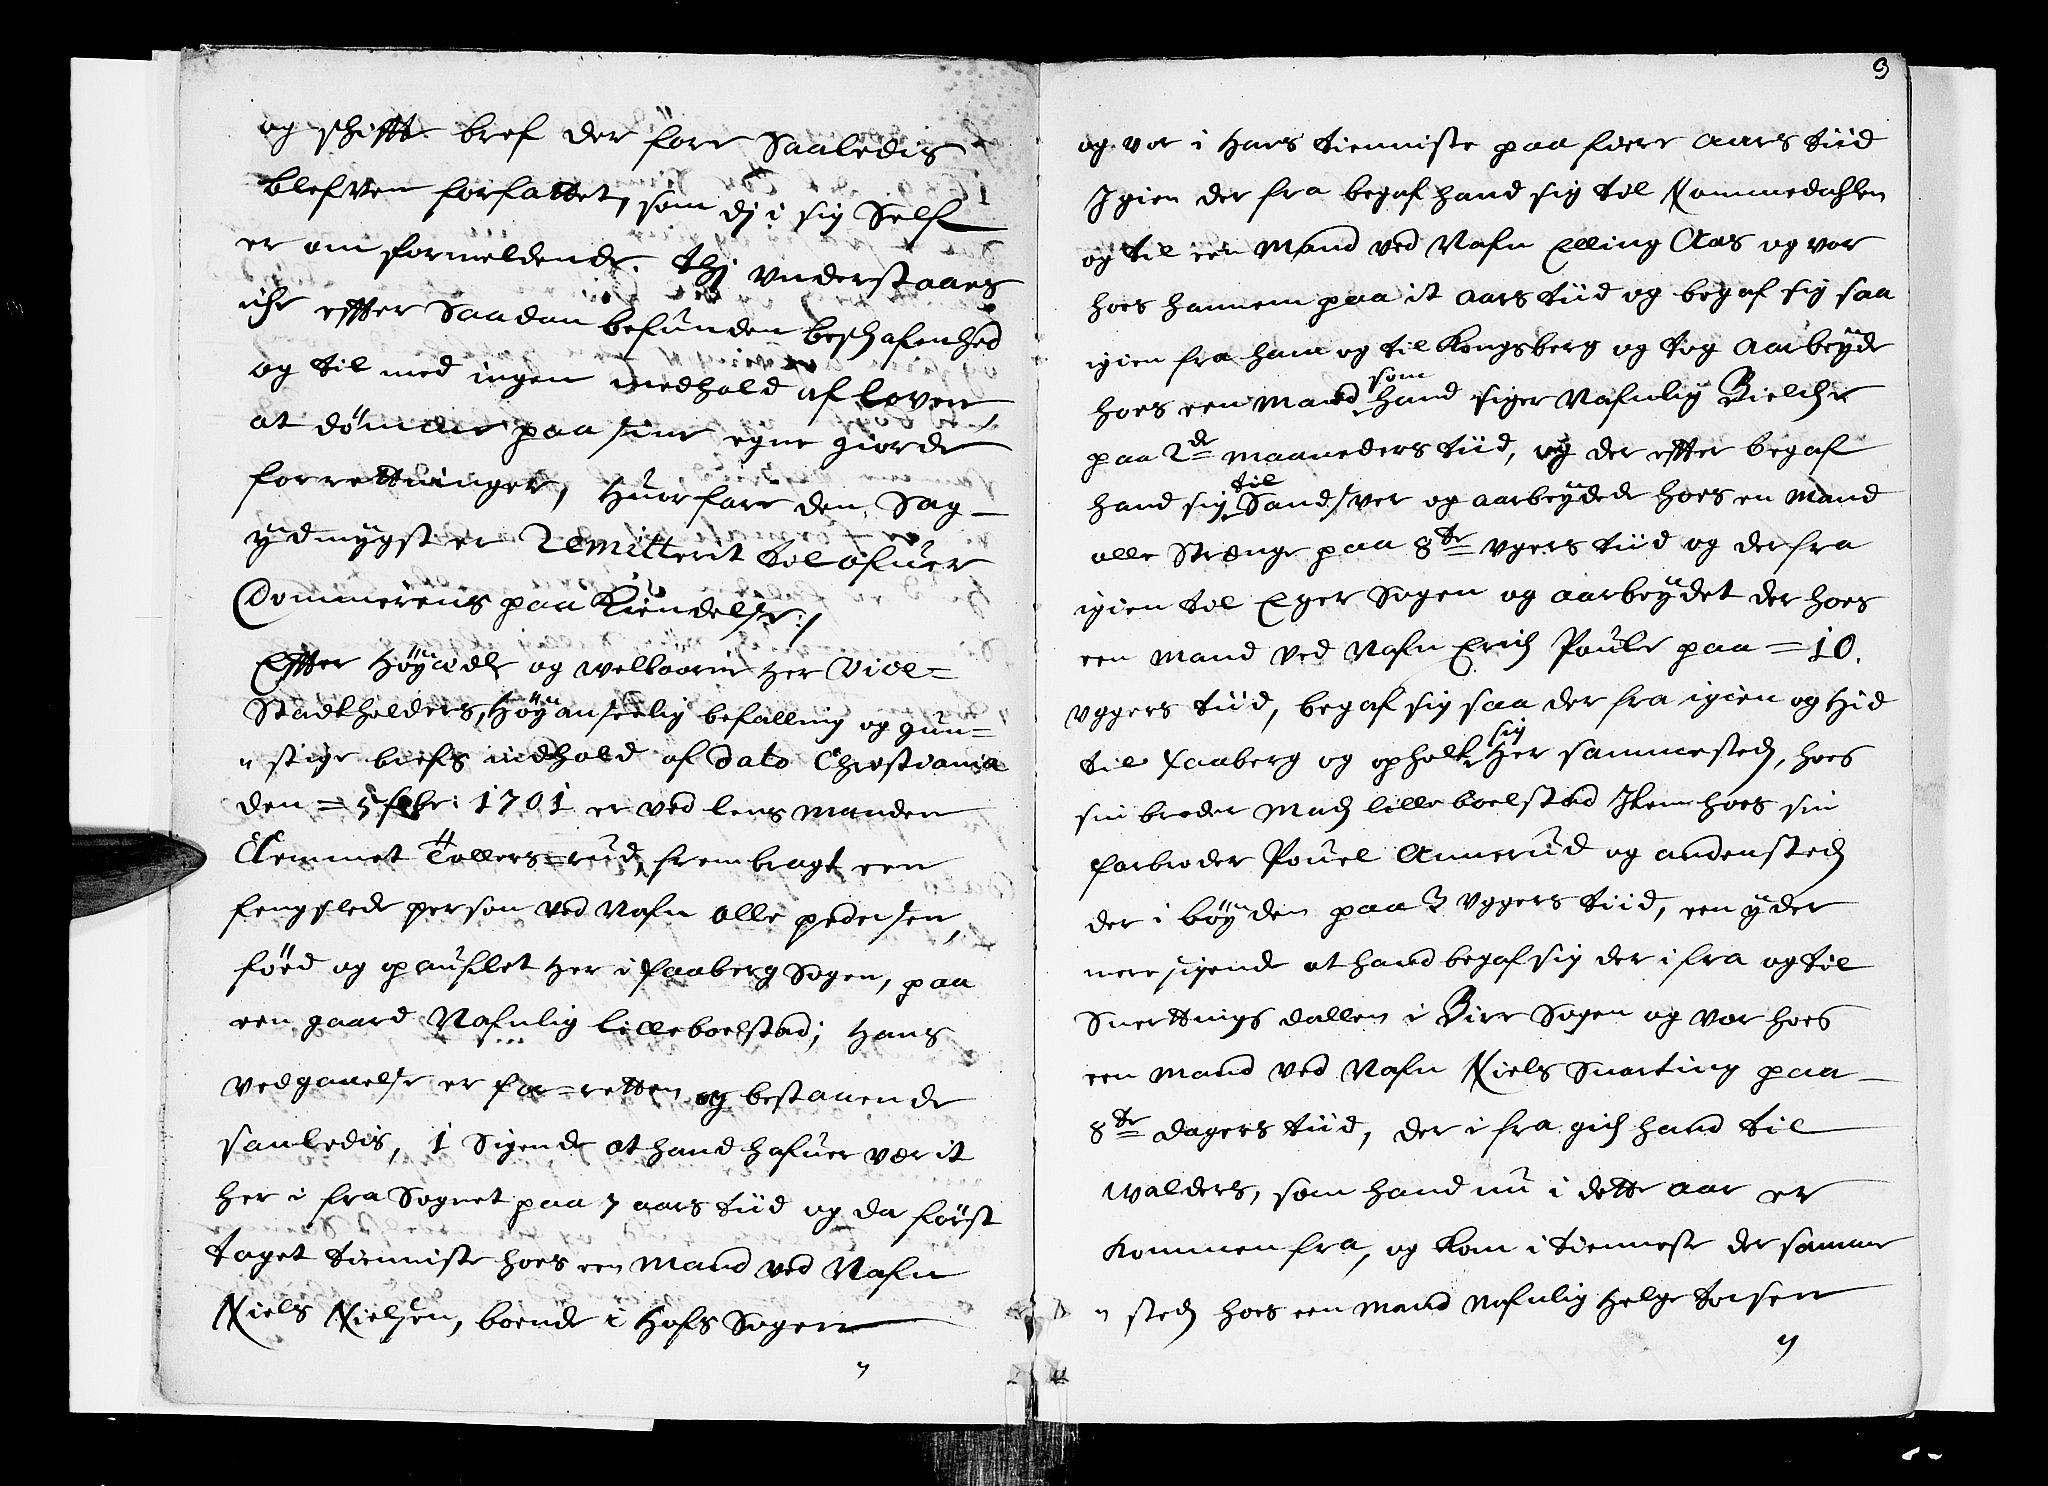 og schifft bref der fore Saaledis
blefven forfattet, som dj i sig Self
er om formeldende. thj understaaes
iche effter Saadan befunden beschafenhed
og til med ingen medhold af loven,
at dömme paa sine egne giorde
forrettninger, huorfore den Sag
ydmygst er Remitterit til ofuer
Dommerens paa Kiendelse:/
Effter Höyædle og welbaarne Her Vice=
Stadtholders, Höyanseelig befalling og gun=
"stige brefs indhold af Dato Christiania
den = 5 febr: 1701 er ved lens manden
Clemmet Tollers=rud, frembragt een
fengslede person ved Nafn olle pedersen,
föed og opauflet her i faaberg Sogen, paa
een gaard Nafnlig lilleboelstad; Hans
vedgaaelse er for=retten og bestaaende
saaledis, i Sigende at hand hafuer værit
her i fra Sognet paa 7 aars tiid og da först
taget tienniste hoes een Mand ved Nafn
Niels Nielsen, boende i Hofs Sogen
3
og var i hans tienniste paa fiere aars tiid
Igien der fra begaf hand sig til Nommedahlen
og til een Mand ved Nafn Elling Aas og var
hoes hannem paa it aars tiid og begaf sig saa
igien fra ham og til Kongsberg og tog aarbeyde
hoes een Mand som hand siger Nafnlig Bielche
paa 2de maaneders tiid, og der effter begaf
hand sig til Sandsver og aarbeydede hoes en Mand
olle Strænge paa 8te ugers tiid og der fra
igien til Eger Sogen og aarbeydet der hoes
een Mand ved Nafn Erich Poule paa = 10.
uggers tiid, begaf sig saa der fra igien og hid
til faaberg og opholt sig her sammesteds, hoes
sin broder Mads lille boelstad Item hoes sin
farbroder Pouel Annerud og andensteds
der i böyden paa 3 uggers tiid, een yder
mere sigende at hand begaf sig der ifra og til
Snerttings dallen i Birre Sogen og var hoes
een Mand ved Nafn Niels Snarting paa
8te dagers tiid, der i fra gich hand til
walders, som hand nu i dette aar er
kommen fra, og kom i tienneste der samme
"steds hoes een Mand Nafnlig Helge toesen